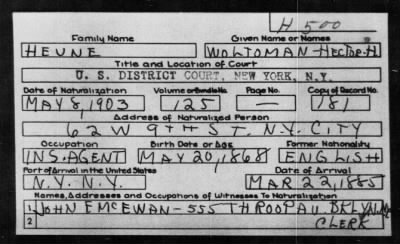 H 500
Family Name Given Name or Names
HEUNE WOLTOMAN-HECTOR-H
Title and Location of Court
U. S. DISTRICT COURT, NEW YORK, N.Y.
Date of Naturalization Volume or Bundle No. Page No. Copy of Record No.
MAY 8, 1903 125 — 181
Address of Naturalized Person
62 W 9TH ST. N.Y. CITY
Occupation Birth Date or Age Former Nationality
INS. AGENT MAY 20, 1868 ENGLISH
Port of Arrival in the United States Date of Arrival
N.Y. N.Y. MAR 22, 1885
Names, Addresses and Occupations of Witnesses To Naturalization
1 JOHN EMCEWAN-555 THROOP AV. BKLYN, N.Y.
2 CLERK